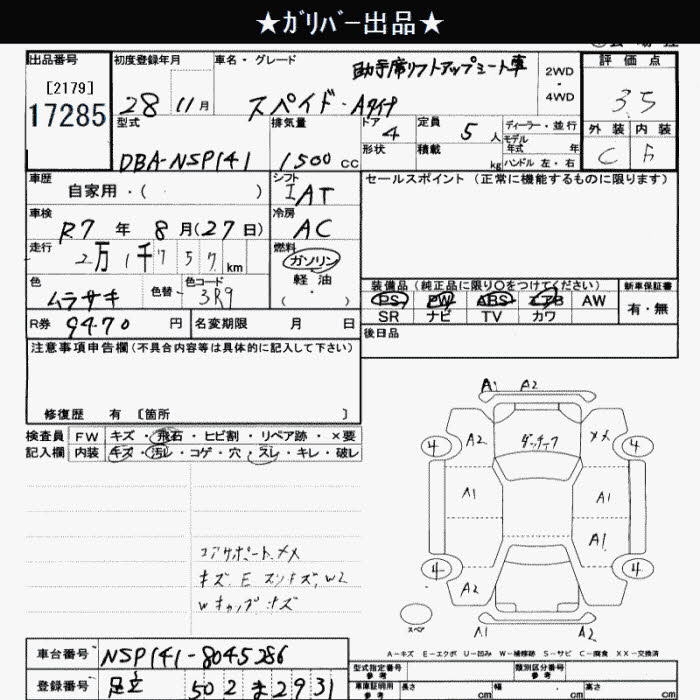 ★ｶﾞﾘﾊﾞｰ出品★
出品番号
[2179]
17285
初度登録年月
28 11月
車名・グレード
助手席リフトアップシート車
スペイド・Aタイプ
2WD
・
4WD
評価点
3.5
外装 内装
C
型式
DBA-NSP141
排気量
1500 cc
ドア
4
形状
定員
5 人
積載
kg
ディーラー・並行
モデル
年式 年
ハンドル 左・右
車歴
自家用・( )
シフト
IAT
セールスポイント (正常に機能するものに限ります)
車検
R.7 年 8 月(27日)
冷房
AC
走行
2万1千757km
燃料
ガソリン
軽油
( ・ )
色
ムラサキ
色替
色コード
3R9
装備品(純正品に限り〇をつけてください)
PS PW ABS エアB AW
SR ナビ TV カワ
新車保証書
有・無
R券 9470 円
名変期限 月 日
後日品
注意事項申告欄(不具合内容等は具体的に記入して下さい)
修復歴 有 〔箇所 〕
検査員
記入欄
FW キズ・飛石・ヒビ割・リペア跡・×要
内装 キズ・汚レ・コゲ・穴・スレ・キレ・破レ
A1 A2
A2 ダッチフ メメ
4 4
A1 A1
A1
4 4
A2
スペア
A1 A2
コアサポートメメ
キズ.E スリキズ,W2
Wキャップキズ
A-キズ E-エクボ U-凹み W-補修跡 S-サビ C-腐食 XX-交換済
車台番号 NSP141-8045286
登録番号 足立 502 ま 2931
型式指定番号
参考
類別区分番号
参考
車庫証明用
参考
長さ cm 幅 cm 高さ cm